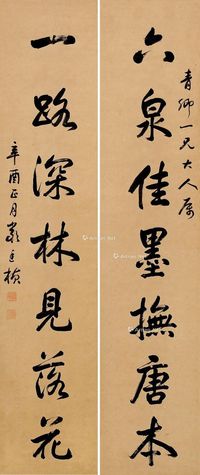 青卿一兄大人属
六泉佳墨撫唐本
一路深林見落花
辛酉正月嚴玉楨